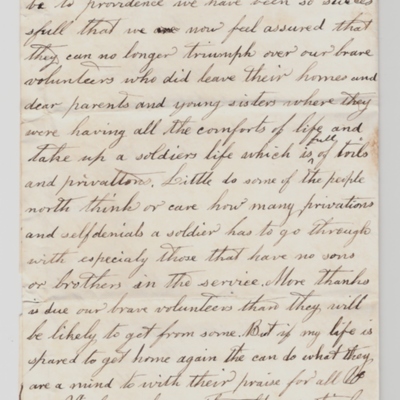 be to providence we have been so succes
sfull that we now feel assured that
they can no longer triumph over our brave
volunteers who did leave their homes and
dear parents and young sisters where they
were having all the comforts of life and
take up a soldiers life which is full of toils
and privattons. Little do some of the people
north think or care how many privations
and selfdenials a soldier has to go through
with especialy those that have no sons
or brothers in the service. More thanks
is due our brave volunteers than they will
be likely to get from some. But if my life is
spared to get home again the can do what they
are a mind to with their praise for all